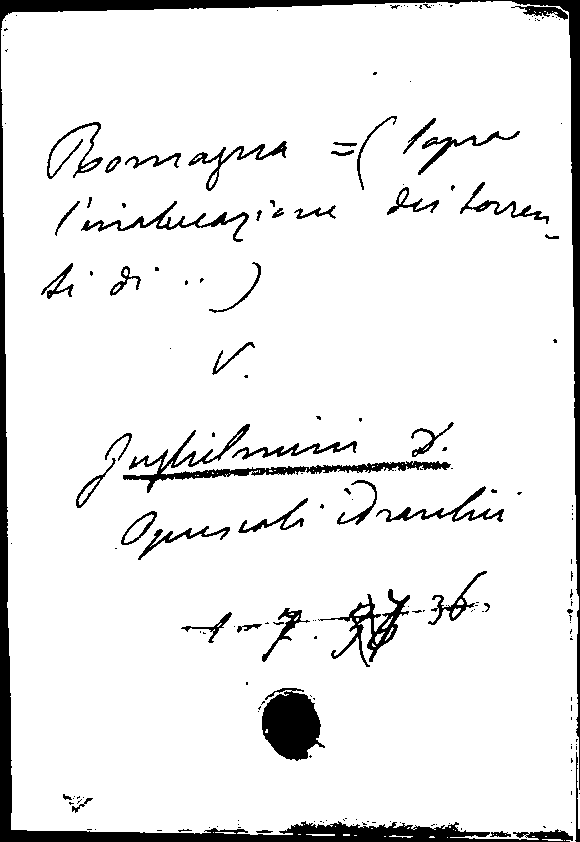 Romagna = (Sopra
l'inalveazione dei torren-
ti di ...)
V.
Guglielmini D.
Opuscoli idraulici
36